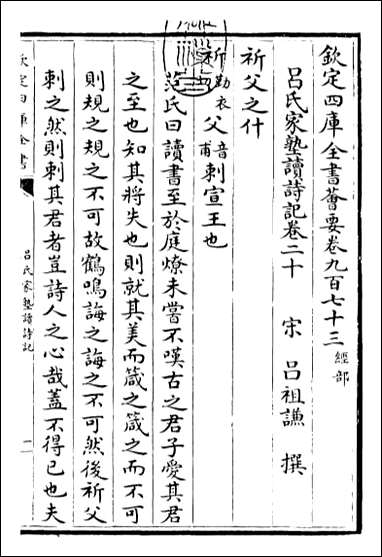 欽定四庫全書薈要卷九百七十三 經部
呂氏家塾讀詩記卷二十 宋 呂祖謙 撰
祈父之什
祈勤衣父音甫刺宣王也
范氏曰讀書至於庭燎未嘗不嘆古之君子愛其君
之至也知其將失也則就其美而箴之箴之而不可
則規之規之不可故鶴鳴誨之誨之不可然後祈父
刺之然則刺其君者豈詩人之心哉蓋不得已也夫
欽定四庫全書
呂氏家塾讀詩記